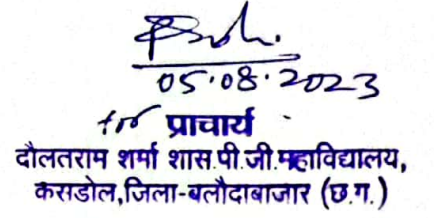 05.08.2023
for प्राचार्य
दौलतराम शर्मा शास.पी.जी.महाविद्यालय,
कसडोल,जिला-बलौदाबाजार (छ.ग.)